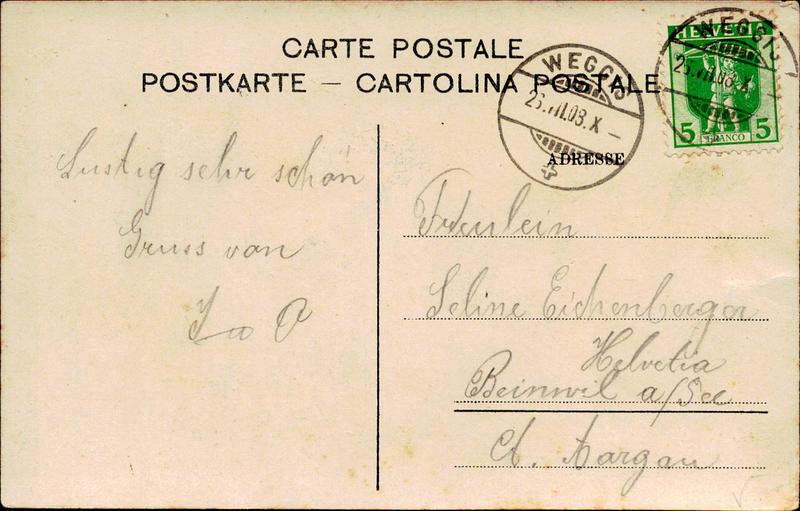 CARTE POSTALE
POSTKARTE – CARTOLINA POSTALE
WEGGIS
25.VII.08.X
WEGGIS
25.VII.08.X
HELVETIA
5 5
FRANCO
ADRESSE
Lustig sehr schön
Gruss von
Fräulein
Seline Eichenberger
Helvetia
Beinwil a/See
Ct. Aargau